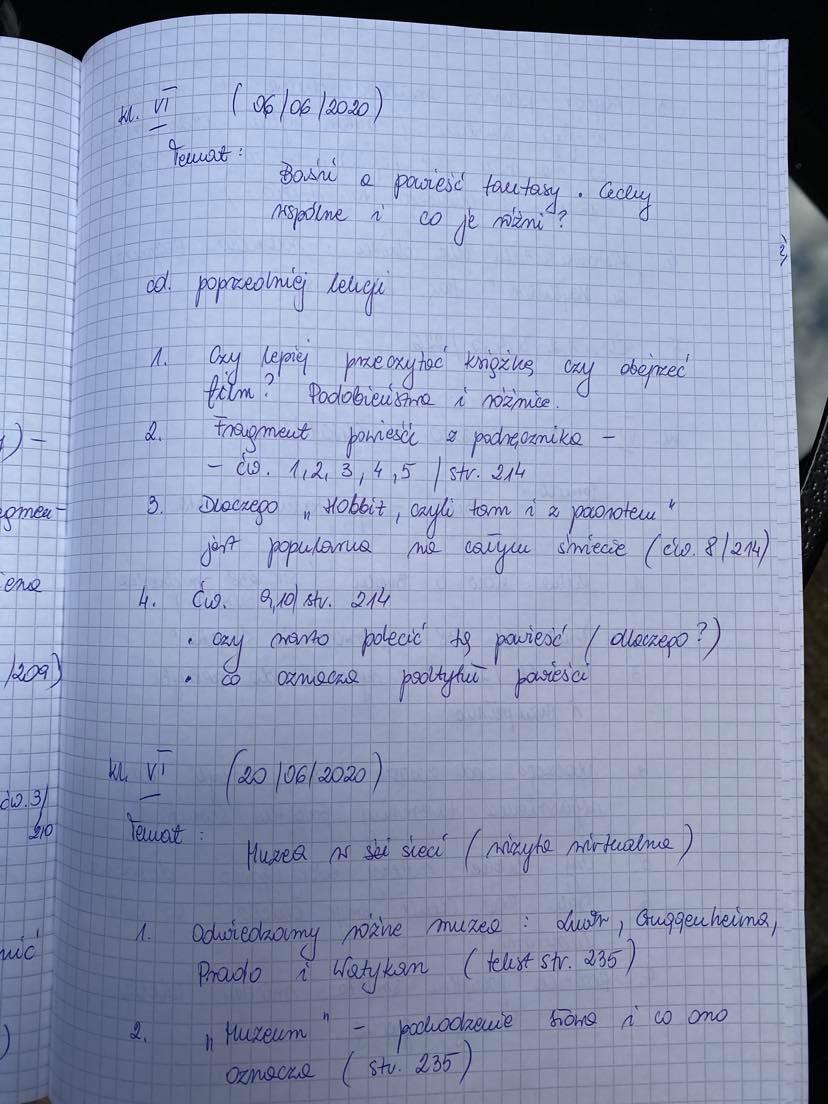 kl. VI (06/06/2020)
Temat:
Baśń a powieść fantasy. Cechy
wspólne i co je różni?
cd. poprzedniej lekcji
1. Czy lepiej przeczytać książkę czy obejrzeć
film? Podobieństwa i różnice.
2. Fragment powieści z podręcznika -
- ćw. 1,2,3,4,5 / str. 214
3. Dlaczego „Hobbit, czyli tam i z powrotem"
jest popularna na całym świecie (ćw. 8/214)
4. Ćw. 9,10/ str. 214
• czy warto polecić tę powieść (dlaczego?)
• co oznacza podtytuł powieści
kl. VI (20/06/2020)
Temat:
Muzea w sieci (wizyta wirtualna)
1. Odwiedzamy różne muzea: Luwr, Guggenheima,
Prado i Watykan (tekst str. 235)
2. „Muzeum" - pochodzenie słowa i co ono
oznacza (str. 235)
) -
ena
/209)
ćw. 3/
210
nić
)